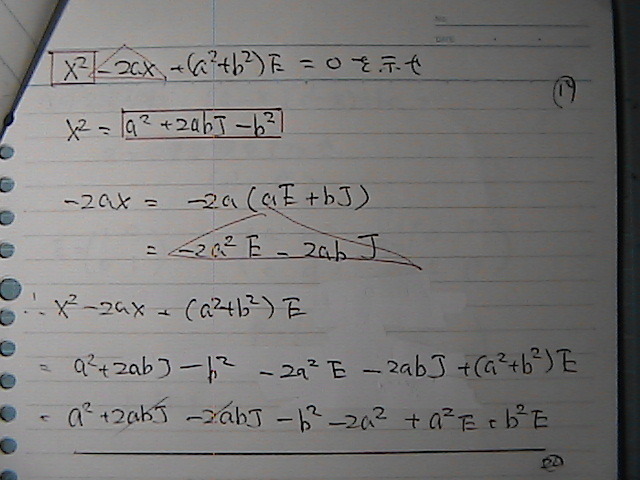 X² - 2ax + (a²+b²)E = 0 を示せ
(19)
X² = a² + 2abJ - b²
-2ax = -2a(aE + bJ)
= -2a²E - 2abJ
∴ X² - 2ax + (a²+b²)E
= a² + 2abJ - b² - 2a²E - 2abJ + (a²+b²)E
= a² + 2abJ - 2abJ - b² - 2a² + a²E + b²E